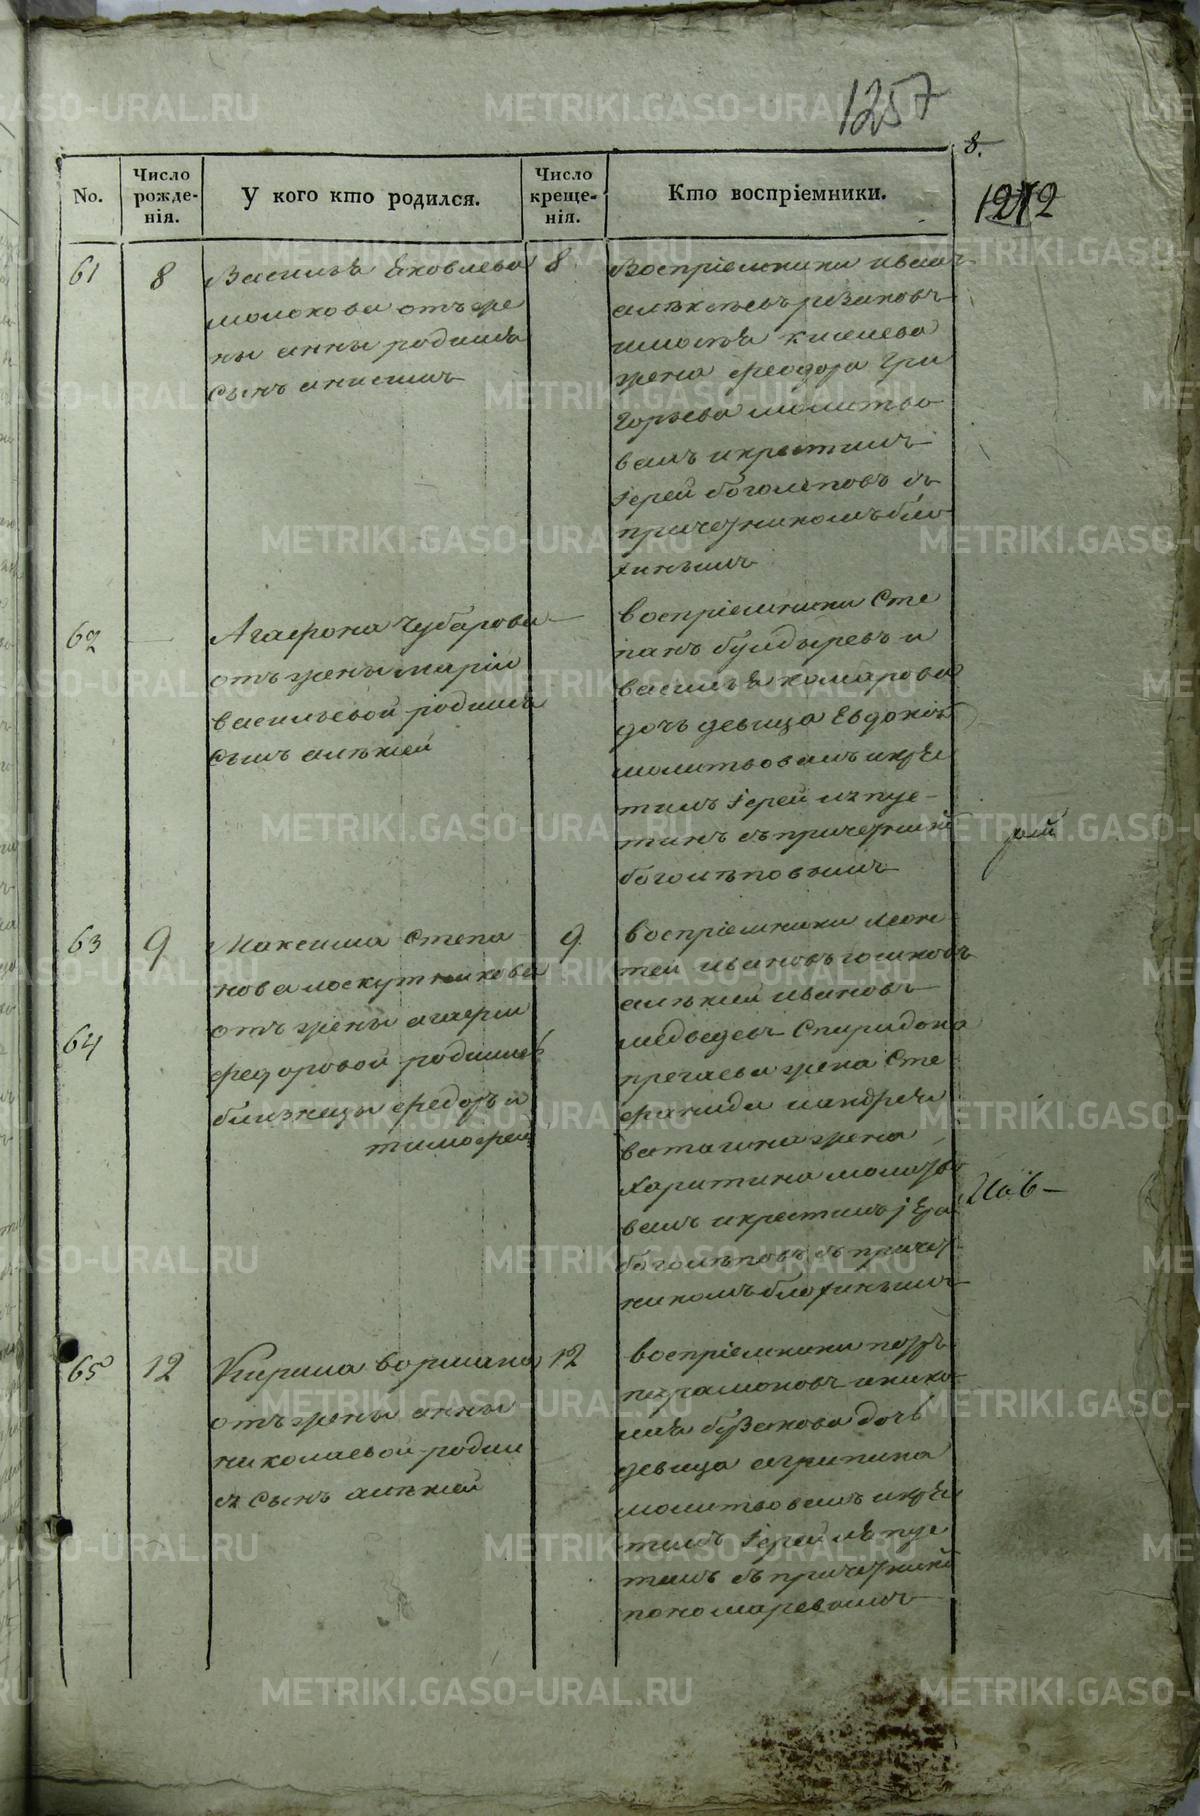 1257
8.
1212
No.
Число рожде- нія.
У кого кто родился.
Число креще- нія.
Кто воспріемники.
61
8
Василья Яковлева
молокова отъ же
ны анны родился
сынъ анисимъ
8
Воспріемники иванъ
алексѣевъ резановъ
киселева
жена феодора Гри
горьева молитво
валъ икрестилъ
Іерей боголѣповъ съ
причетникомъ
62
—
Агафона Чубарова
отъ жены маріи
васильевой родился
сынъ алѣксей
—
воспріемники Сте
панъ булдыревъ и
василья комарова
дочь девица Евдокія
молитвовалъ икрѣс
тилъ Іерей
съ причетник
боголѣповымъ
63
9
Максима Степа
нова лоскутникова
64
отъ жены агафіи
федоровой родились
близнецы федоръ и
тимофей
9
воспріемники леон
тей ивановъ
алѣксей ивановъ
медведевъ Спиридона
жена Сте
фанида иандрея
ватагина жена
Харитина молитво
валъ икрестилъ іере
боголѣповъ съ причет
никомъ
65
12
Кирила
отъ жены анны
николаевой родил
ся сынъ алѣксей
12
воспріемники петръ
парамоновъ инико
лая бузанова дочь
девица агрипина
молитвовалъ икрѣс
тилъ Іерей
съ причетник
пономаревымъ